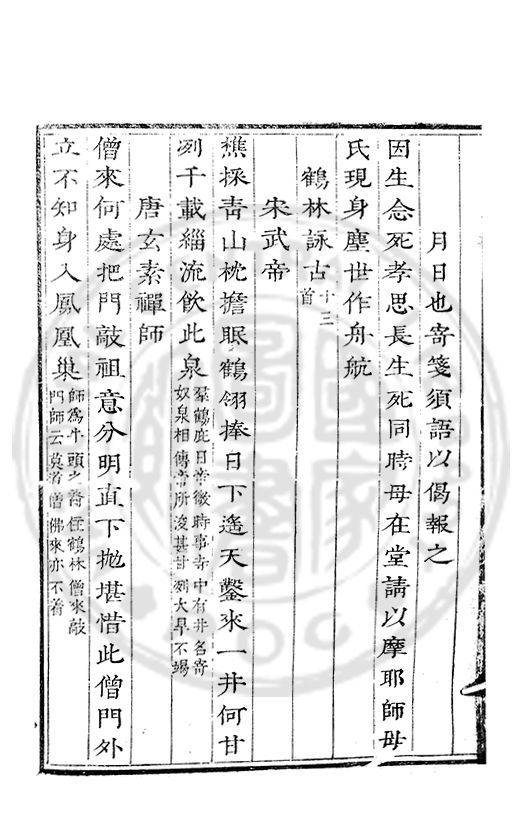 月日也寄箋須語以偈報之
因生念死孝思長生死同時母在堂請以摩耶師母
氏現身塵世作舟航
鶴林詠古十三首
宋武帝
樵採青山枕擔眠鶴翎捧日下遙天鑿來一井何甘
冽千載緇流飲此泉
羣鶴庇日帝微時事寺中有井名寄
奴泉相傳帝所浚甚甘冽大旱不竭
唐玄素禪師
僧來何處把門敲祖意分明直下拋堪惜此僧門外
立不知身入鳳凰巢
師為牛頭之裔住鶴林僧來敲
門師云莫道僧佛來亦不着